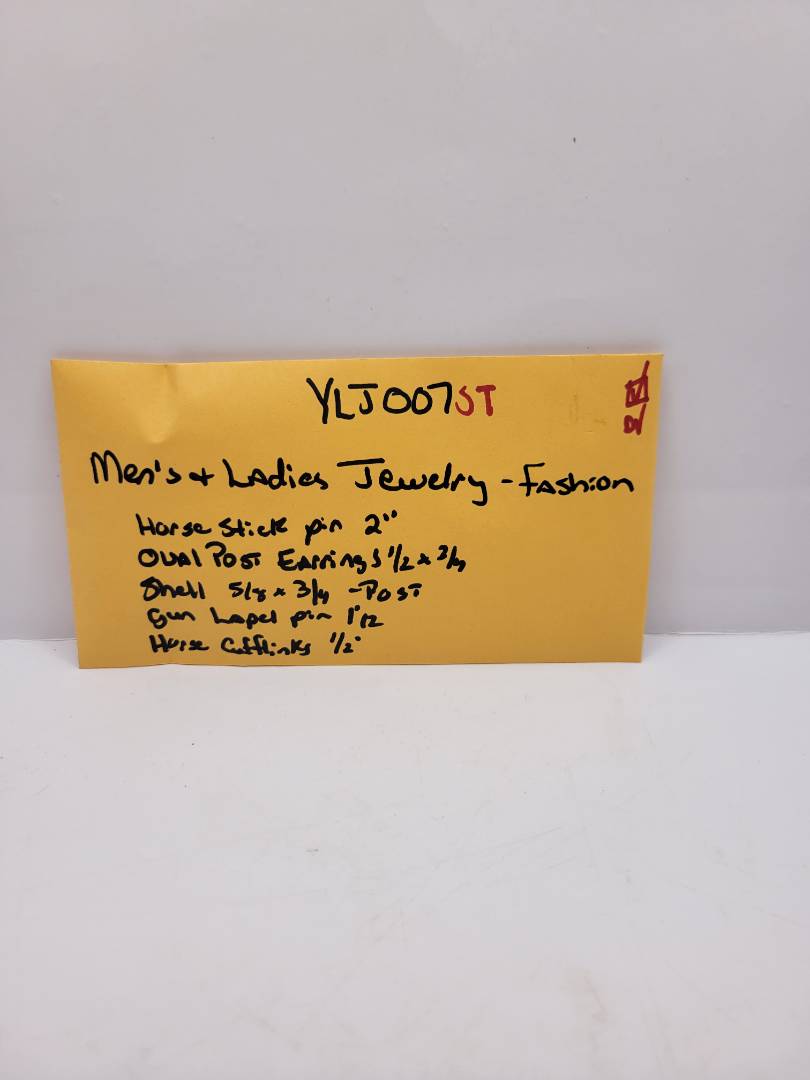 YLJ007ST
Men's + Ladies Jewelry - Fashion
Horse Stick pin 2"
Oval Post Earrings 1/2 x 3/4
Shell 5/8 x 3/4 - Post
Gun Lapel pin 1"12
Horse Cufflinks 1/2"